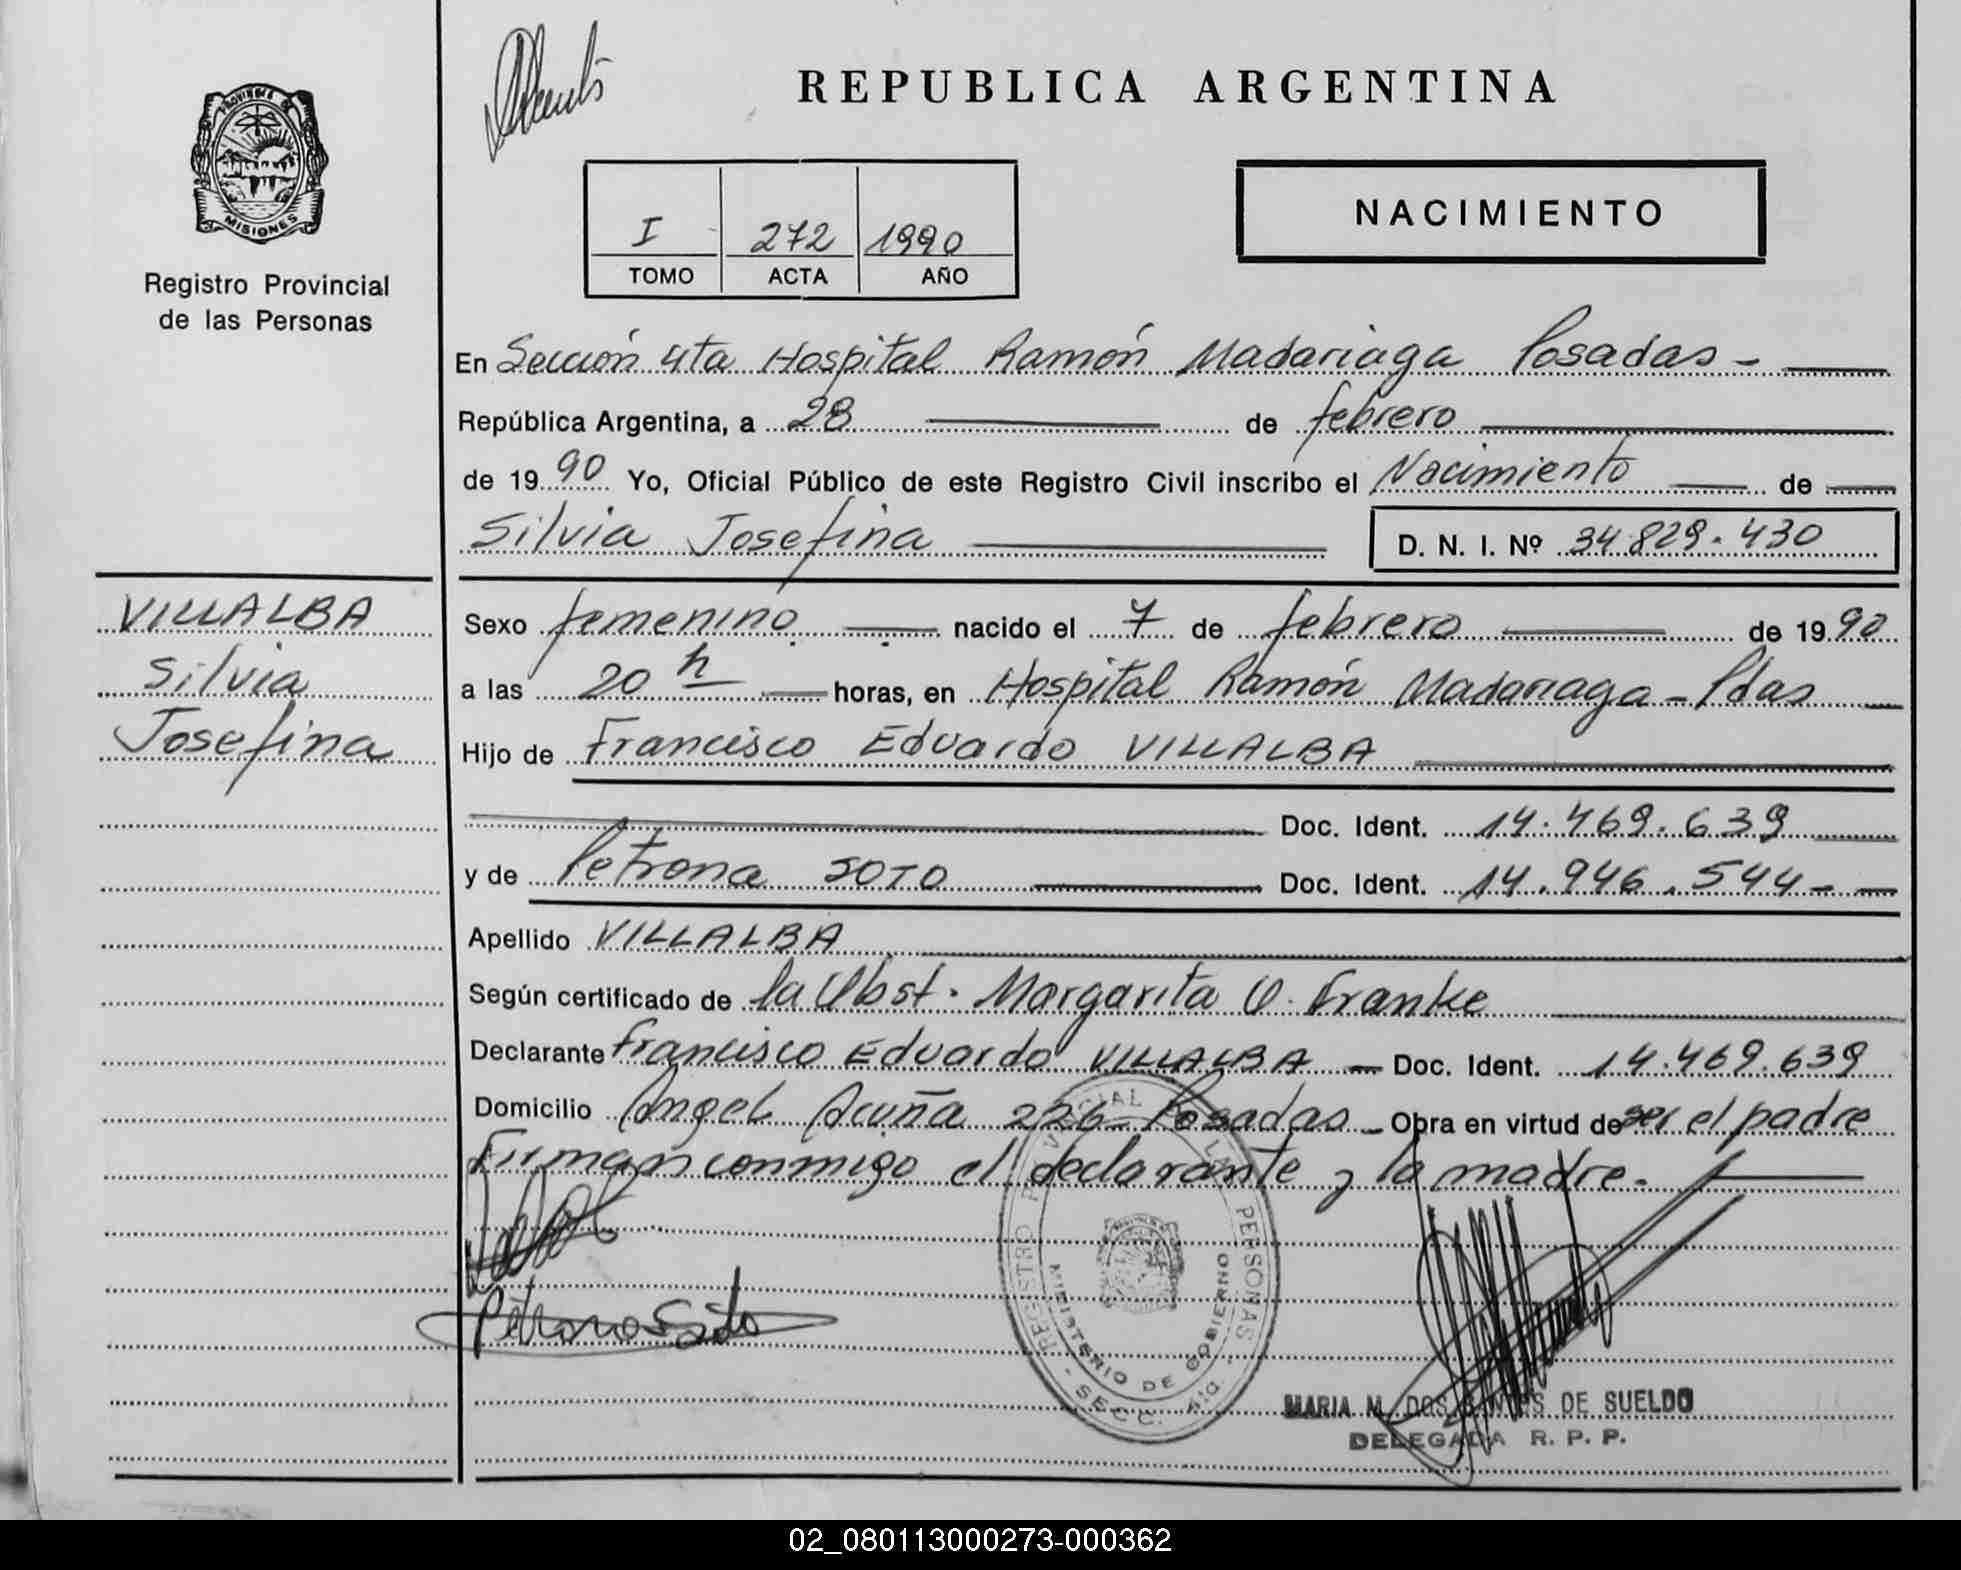 REPUBLICA ARGENTINA
PROVINCIA DE
MISIONES
Registro Provincial
de las Personas
I 272 1990
TOMO ACTA AÑO
NACIMIENTO
En Sección 4ta Hospital Ramón Madariaga Posadas -
República Argentina, a 28 de febrero
de 1990 Yo, Oficial Público de este Registro Civil inscribo el Nacimiento de
Silvia Josefina D. N. I. Nº 34.829.430
VILLALBA
Silvia
Josefina
Sexo femenino nacido el 7 de febrero de 1990
a las 20 h horas, en Hospital Ramón Madariaga - Pdas
Hijo de Francisco Eduardo VILLALBA
Doc. Ident. 14.469.639
y de Petrona SOTO Doc. Ident. 14.946.544-
Apellido VILLALBA
Según certificado de la Obst. Margarita O. Franke
Declarante Francisco Eduardo VILLALBA - Doc. Ident. 14.469.639
Domicilio Angel Acuña 226 - Posadas - Obra en virtud de ser el padre
Firman conmigo el declarante y la madre.
Petrona Soto
REGISTRO PROVINCIAL DE LAS PERSONAS
MINISTERIO DE GOBIERNO
- SECC. 4ta. -
MARIA M. DOS SANTOS DE SUELDO
DELEGADA R. P. P.
02_080113000273-000362